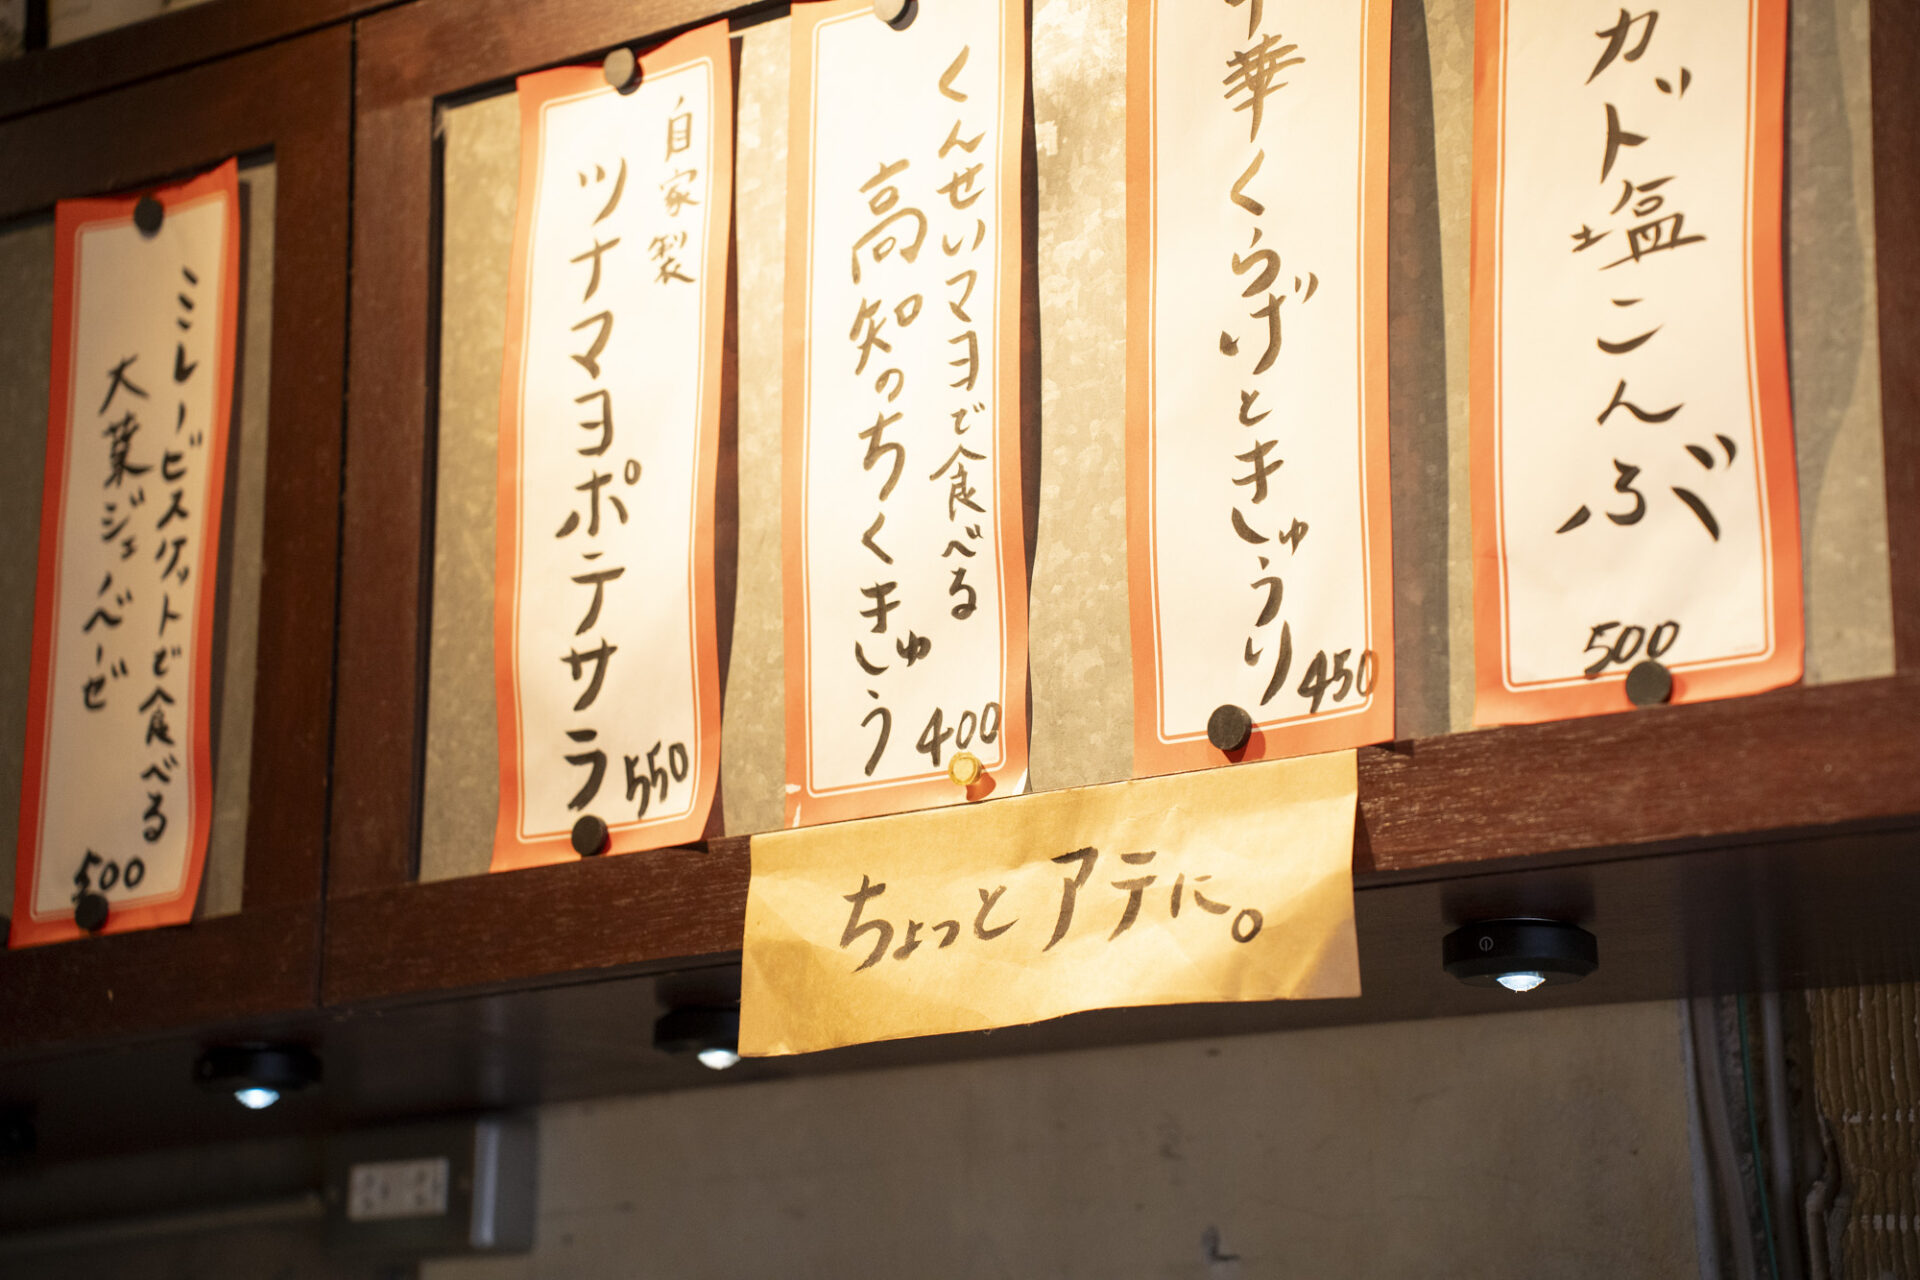 ガット塩こんぶ
500
中華くらげときゅうり
450
くんせいマヨで食べる
高知のちくきゅう
400
自家製
ツナマヨポテサラ
550
ミレービスケットで食べる
大葉ジェノベーゼ
500
ちょっとアテに。